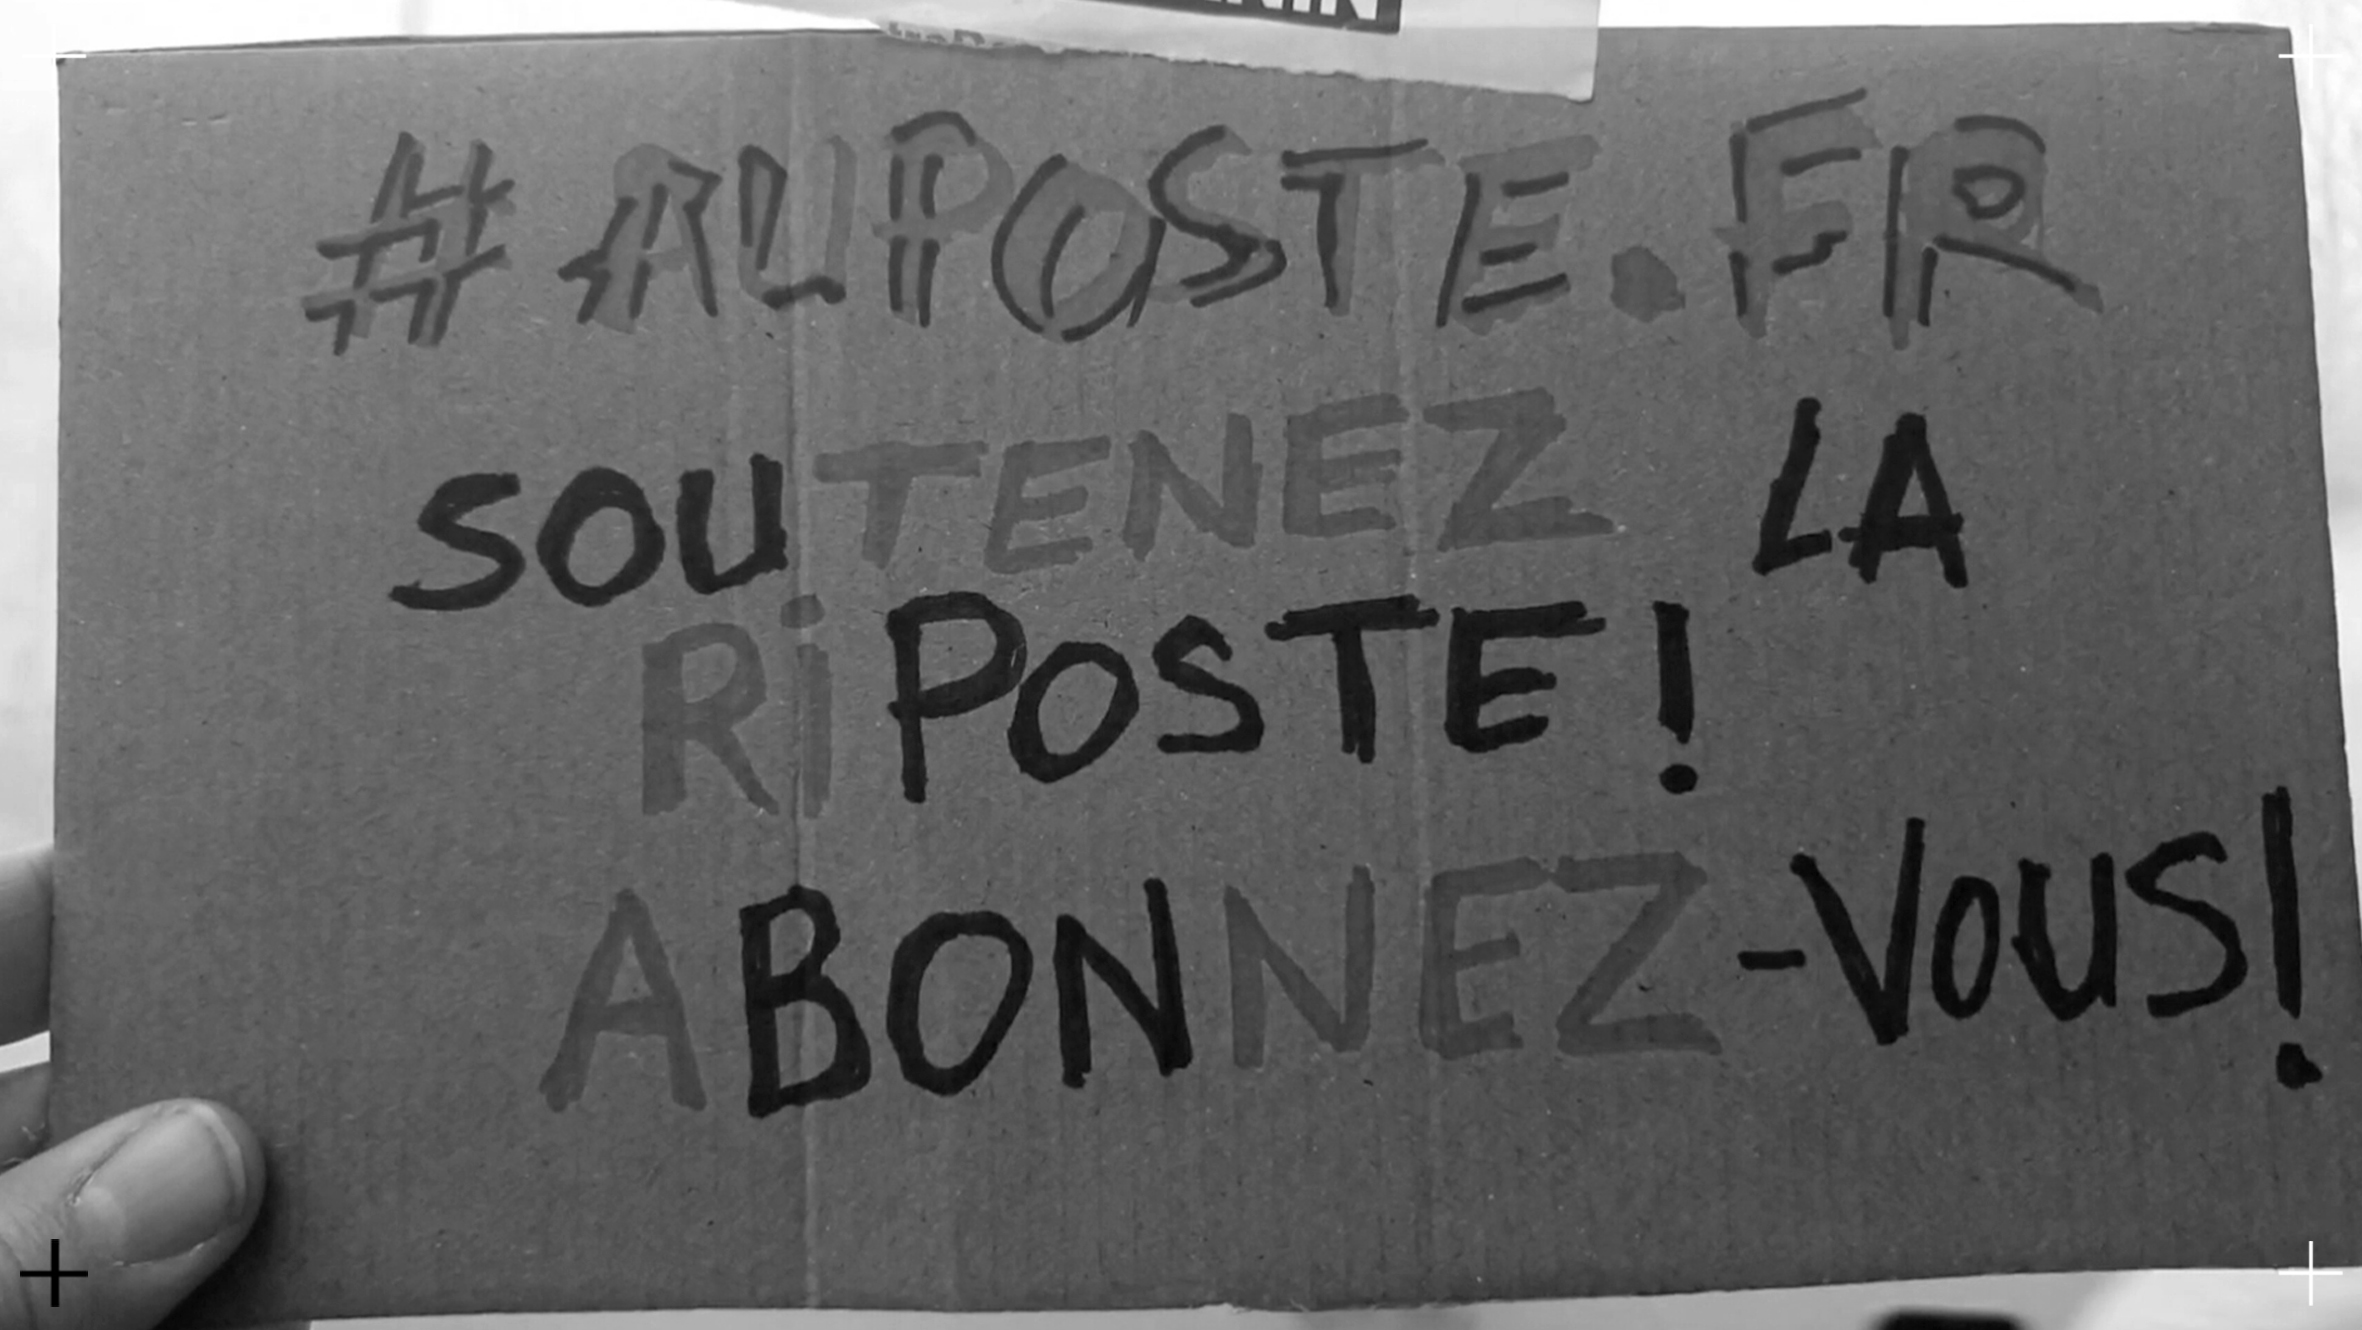 #AUPOSTE.FR
SOUTENEZ LA
RiPOSTE !
ABONNEZ-VOUS!